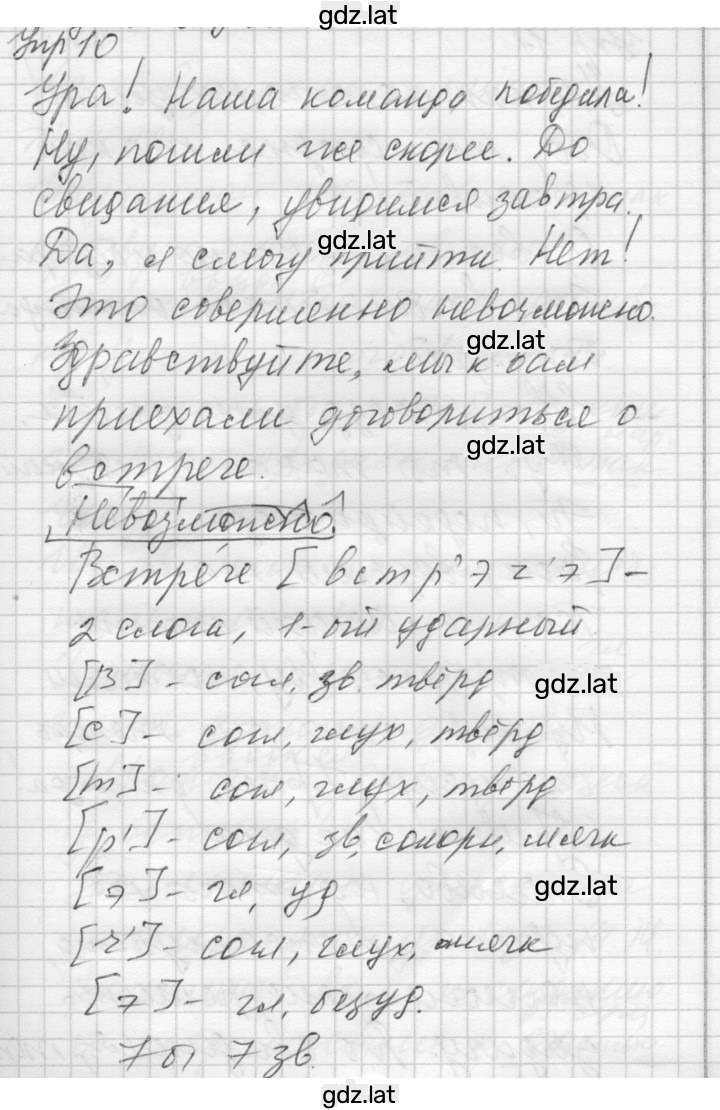 gdz.lat
Упр 10
Ура! Наша команда победила!
Ну, пошли же скорее. До
свидания, увидимся завтра.
gdz.lat
Да, я смогу прийти. Нет!
Это совершенно невозможно.
gdz.lat
Здравствуйте, мы к вам
приехали договориться о
gdz.lat
встрече.
Невозможно.
Встре́че [встр'эч'э] -
2 слога, 1-ый ударный
[в] - согл, зв. твёрд
gdz.lat
[с] - согл, глух, твёрд
[т] - согл, глух, твёрд
gdz.lat
[р'] - согл, зв, сонорн, мягк
[э] - гл, уд
gdz.lat
[ч'] - согл, глух, мягк
[э] - гл, безуд.
7 б 7 зв.
gdz.lat